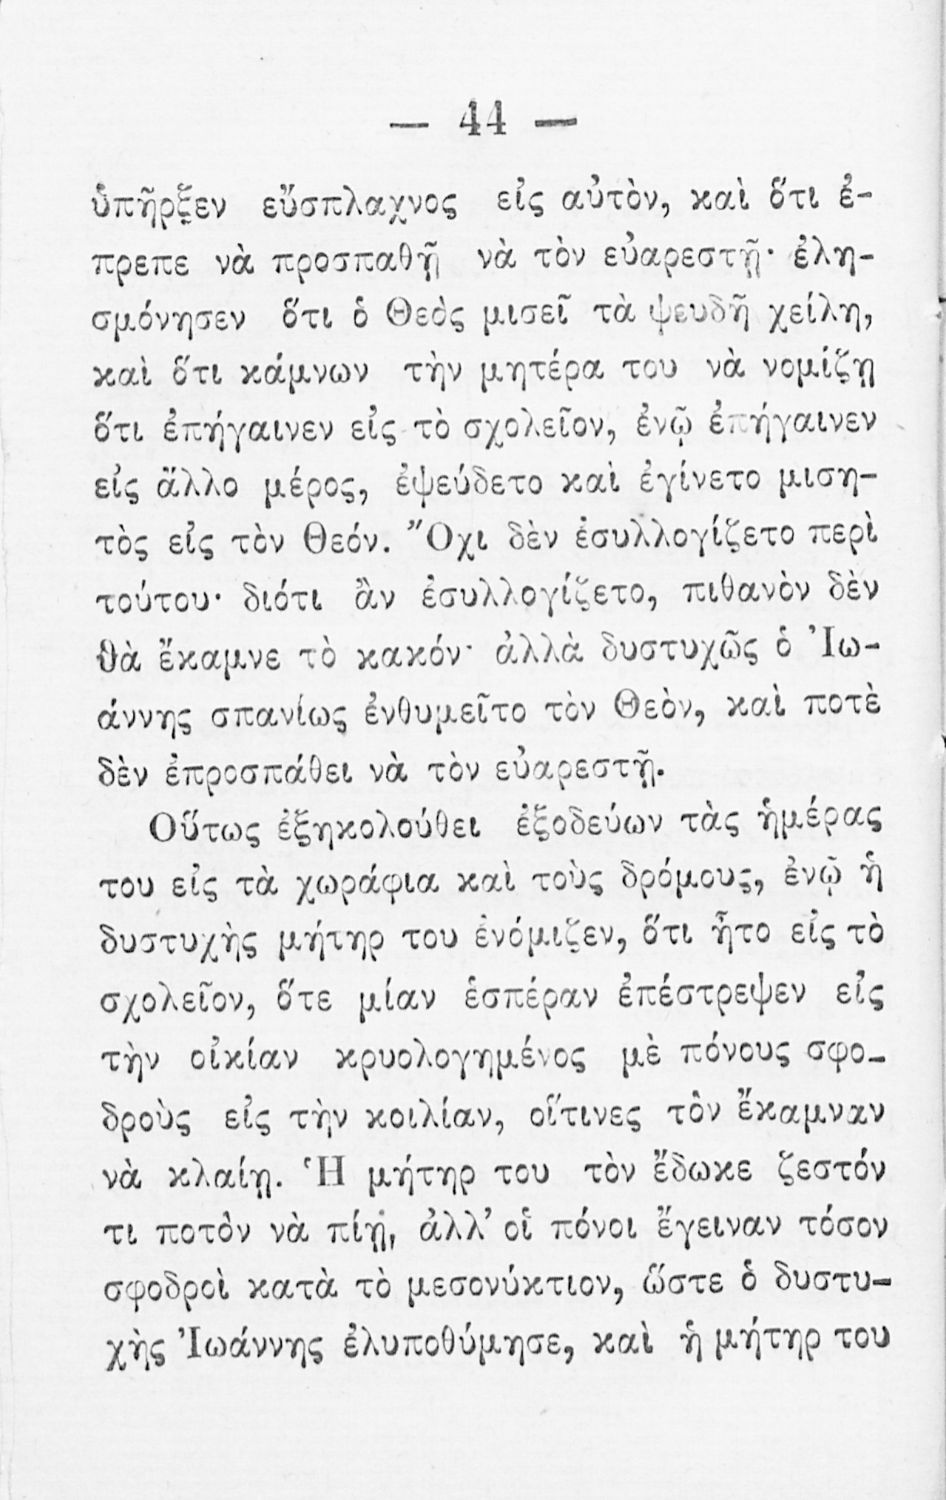 — 44 —
ὑπῆρξεν εὔσπλαχνος εἰς αὐτὸν, καὶ ὅτι ἔ-
πρεπε νὰ προσπαθῇ νὰ τὸν εὐαρεστῇ· ἐλη-
σμόνησεν ὅτι ὁ Θεὸς μισεῖ τὰ ψευδῆ χείλη,
καὶ ὅτι κάμνων τὴν μητέρα του νὰ νομίζῃ
ὅτι ἐπήγαινεν εἰς τὸ σχολεῖον, ἐνῷ ἐπήγαινεν
εἰς ἄλλο μέρος, ἐψεύδετο καὶ ἐγίνετο μιση-
τὸς εἰς τὸν Θεόν. Ὄχι δὲν ἐσυλλογίζετο περὶ
τούτου· διότι ἂν ἐσυλλογίζετο, πιθανὸν δὲν
θὰ ἔκαμνε τὸ κακόν· ἀλλὰ δυστυχῶς ὁ Ἰω-
άννης σπανίως ἐνθυμεῖτο τὸν Θεὸν, καὶ ποτὲ
δὲν ἐπροσπάθει νὰ τὸν εὐαρεστῇ.
Οὕτως ἐξηκολούθει ἐξοδεύων τὰς ἡμέρας
του εἰς τὰ χωράφια καὶ τοὺς δρόμους, ἐνῷ ἡ
δυστυχὴς μήτηρ του ἐνόμιζεν, ὅτι ἦτο εἰς τὸ
σχολεῖον, ὅτε μίαν ἑσπέραν ἐπέστρεψεν εἰς
τὴν οἰκίαν κρυολογημένος μὲ πόνους σφο-
δροὺς εἰς τὴν κοιλίαν, οἵτινες τὸν ἔκαμναν
νὰ κλαίῃ. Ἡ μήτηρ του τὸν ἔδωκε ζεστόν
τι ποτὸν νὰ πίῃ, ἀλλ’ οἱ πόνοι ἔγειναν τόσον
σφοδροὶ κατὰ τὸ μεσονύκτιον, ὥστε ὁ δυστυ-
χὴς Ἰωάννης ἐλυποθύμησε, καὶ ἡ μήτηρ του